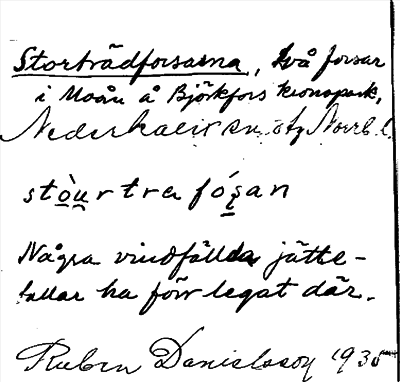 Storträdforsarna, två forsar
i Moån å Björkfors kronopark,
Nederkalix sn, Norrb. l.
stòu̯rtrafósan
Några vindfällda jätte-
tallar ha förr legat där.
Ruben Danielsson 1935